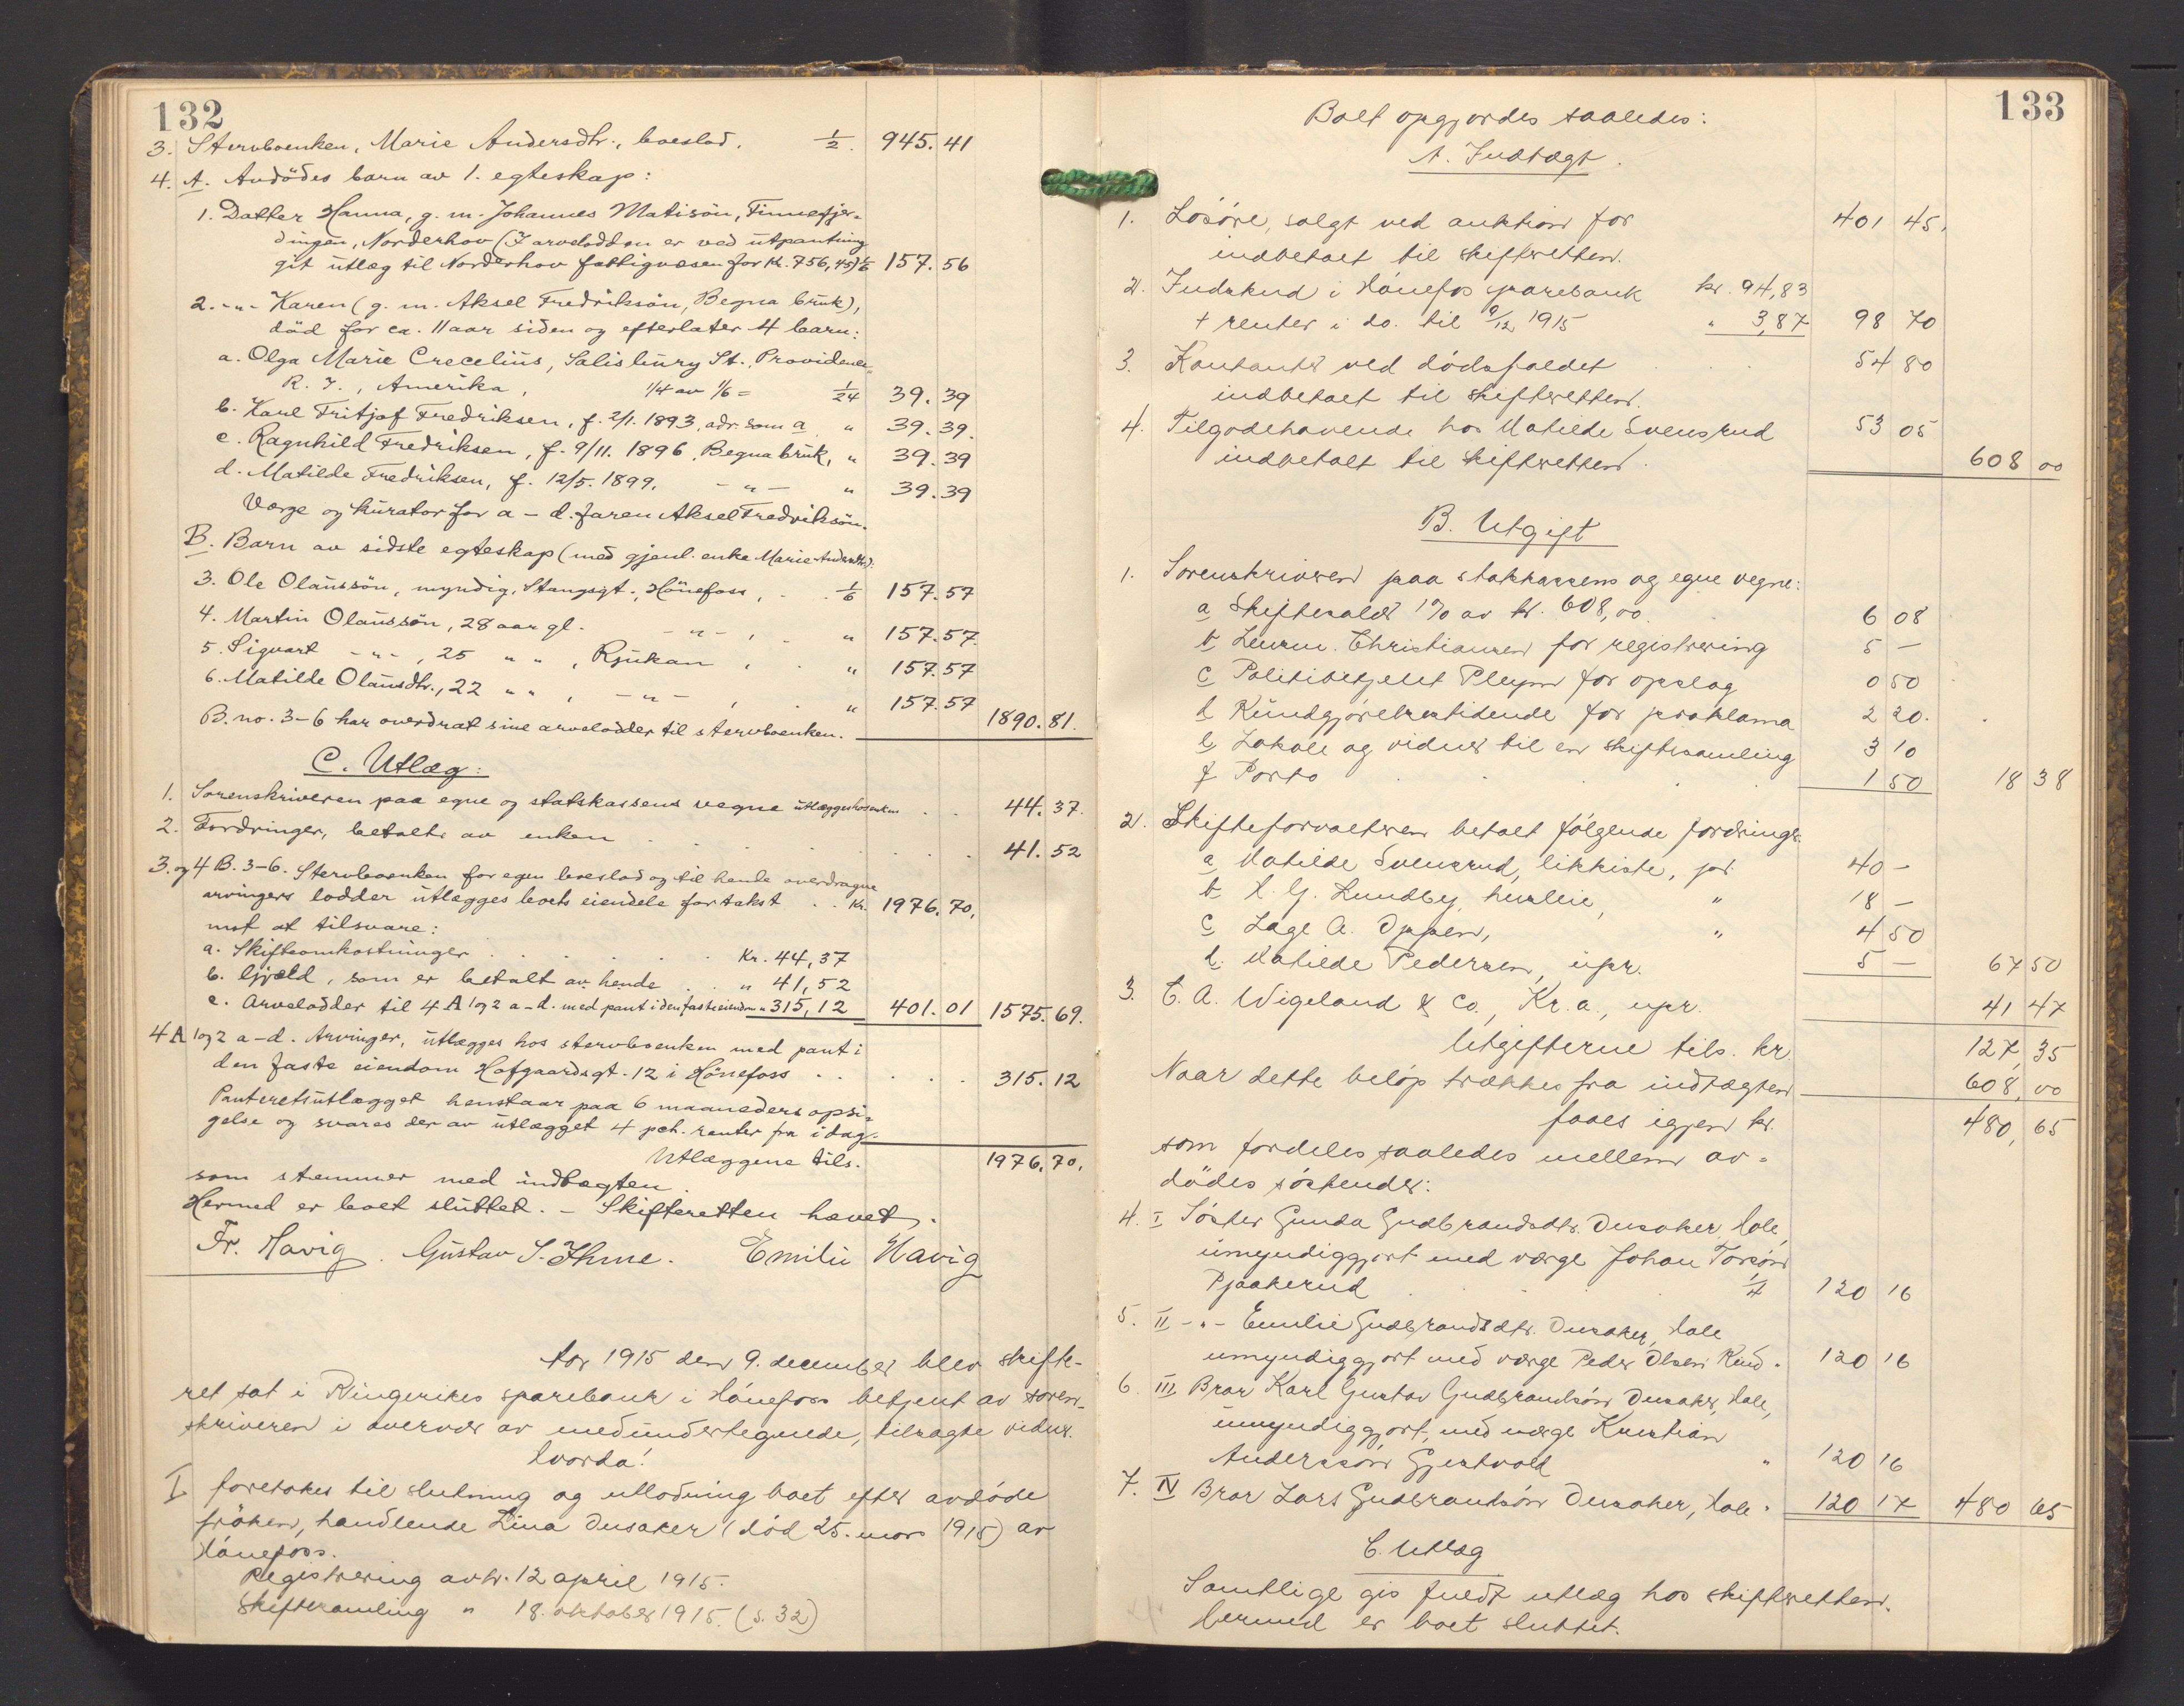 132
3. Stervboenken, Marie Andersdtr., boeslod. 1/2. 945.41
4. A. Avdödes barn av 1. egteskap:
1. Datter Hanna, g. m. Johannes Matisön, Finnefjer-
dingen, Norderhov (I arvelodden er ved utpantning
git utlæg til Norderhov fattigvæsen for kr. 756,45) 1/6 157.56
2. -"- Karen (g. m. Aksel Fredriksön, Begna bruk),
död for ca. 11 aar siden og efterlater 4 barn:
a. Olga Marie Crecelius, Salisbury St., Providence
R. I., Amerika, 1/4 av 1/6 = 1/24 39.39
b. Karl Fritjof Fredriksen, f. 2/1. 1893, adr. som a " 39.39.
c. Ragnhild Fredriksen, f. 9/11. 1896, Begna bruk, " 39.39
d. Matilde Fredriksen, f. 12/5. 1899. -"- " 39.39
Værge og kurator for a - d. faren Aksel Fredriksön.
B. Barn av sidste egteskap (med gjenl. enke Marie Andersdtr.):
3. Ole Olaussön, myndig, Stangsgt., Hönefoss, . 1/6 157.57
4. Martin Olaussön, 28 aar gl. -"- , . " 157.57.
5. Sigvart -"-, 25 " ", Rjukan , . " 157.57
6. Matilde Olausdtr., 22 " ", -"- , . " 157.57
B. no. 3-6 har overdrat sine arvelodder til stervboenken. 1890.81.
C. Utlæg:
1. Sorenskriveren paa egne og statskassens vegne utlægges hos enken . . 44.37.
2. Fordringer, betalt av enken . . . . . . . 41.52
3. og 4 B. 3-6. Stervboenken for egen boeslod og til hende overdragne
arvingers lodder utlægges boets eiendele for takst . . kr. 1976.70.
mot at tilsvare:
a. Skifteomkostninger . . . . . Kr. 44,37
b. Gjæld, som er betalt av hende . . " 41,52
c. Arvelodder til 4 A 1 og 2 a-d. med pant i den faste eiendom " 315,12 401.01 1575.69.
4 A 1 og 2 a-d. Arvinger, utlægges hos stervboenken med pant i
den faste eiendom Hofgaardsgt. 12 i Hönefoss . . . . . 315.12
Panteretsutlægget henstaar paa 6 maaneders opsi-
gelse og svares der av utlægget 4 pct. renter fra idag.
Utlæggene tils. 1976.70.
som stemmer med indtægten.
Hermed er boet sluttet. - Skifteretten hævet.
Fr. Havig. Gustav S. Ihme. Emilie Havig
Aar 1915 den 9. december blev skifte-
ret sat i Ringerikes sparebank i Hönefoss betjent av soren-
skriveren i overvær av medundertegnede, tilsagte vidner.
Hvorda!
I foretokes til slutning og utlodning boet efter avdöde
fröken, handlende Lina Dusaker (död 25. mars 1915) av
Hönefoss.
Registrering avh. 12 april 1915.
Skiftesamling " 18. oktober 1915. (s. 32)
133
Boet opgjordes saaledes:
A. Indtægt.
1. Lösöre, solgt ved auktion for 401 45.
indbetalt til skifteretten.
2. Indskud i Hönefos sparebank kr. 94,83
+ renter i do. til 9/12 1915 " 3,87 98 70
3. Kontanter ved dödsfaldet . . 54 80
indbetalt til skifteretten.
4. Tilgodehavende hos Matilde Svensrud 53 05
indbetalt til skifteretten. 608 00
B. Utgift
1. Sorenskriveren paa statskassens og egne vegne:
a Skiftesalær 1% av kr. 608,00. 6 08
b Lensm. Christiansen for registrering 5 -
c Politibetjent Pleym for opslag 0 50
d Kundgjörelsestidende for proklama 2 20.
e Lokale og vidner til en skiftesamling 3 10
f Porto . . . 1 50 18 38
2. Skifteforvalteren betalt fölgende fordringer
a Matilde Svensrud, likkiste, pr. 40 -
b H. G. Lundby, husleie, " 18 -
c Lage A. Oppen, " 4 50
d. Matilde Pedersen, upr. 5 - 67 50
3. C. A. Wigeland & Co., Kr.a., upr. 41 47
Utgifterne tils. kr. 127,35
Naar dette belöp trækkes fra indtægten 608,00
faaes igjen kr. 480,65
som fordeles saaledes mellem av-
dödes söskender:
4. I Söster Gunda Gudbrandsdtr. Dusaker, Hole,
umyndiggjort med værge Johan Torsön
Pjaakerud . . . 1/4 120 16
5. II -"- Emilie Gudbrandsdtr. Dusaker, Hole
umyndiggjort med værge Peder Olsen Rud " 120 16
6. III Bror Karl Gustav Gudbrandsön Dusaker, Hole,
umyndiggjort, med værge Kristian
Anderssön Gjestvold " 120 16
7. IV Bror Lars Gudbrandsön Dusaker, Hole " 120 17 480 65
C. Utlæg
Samtlige gis fuldt utlæg hos skifteretten.
Hermed er boet sluttet.